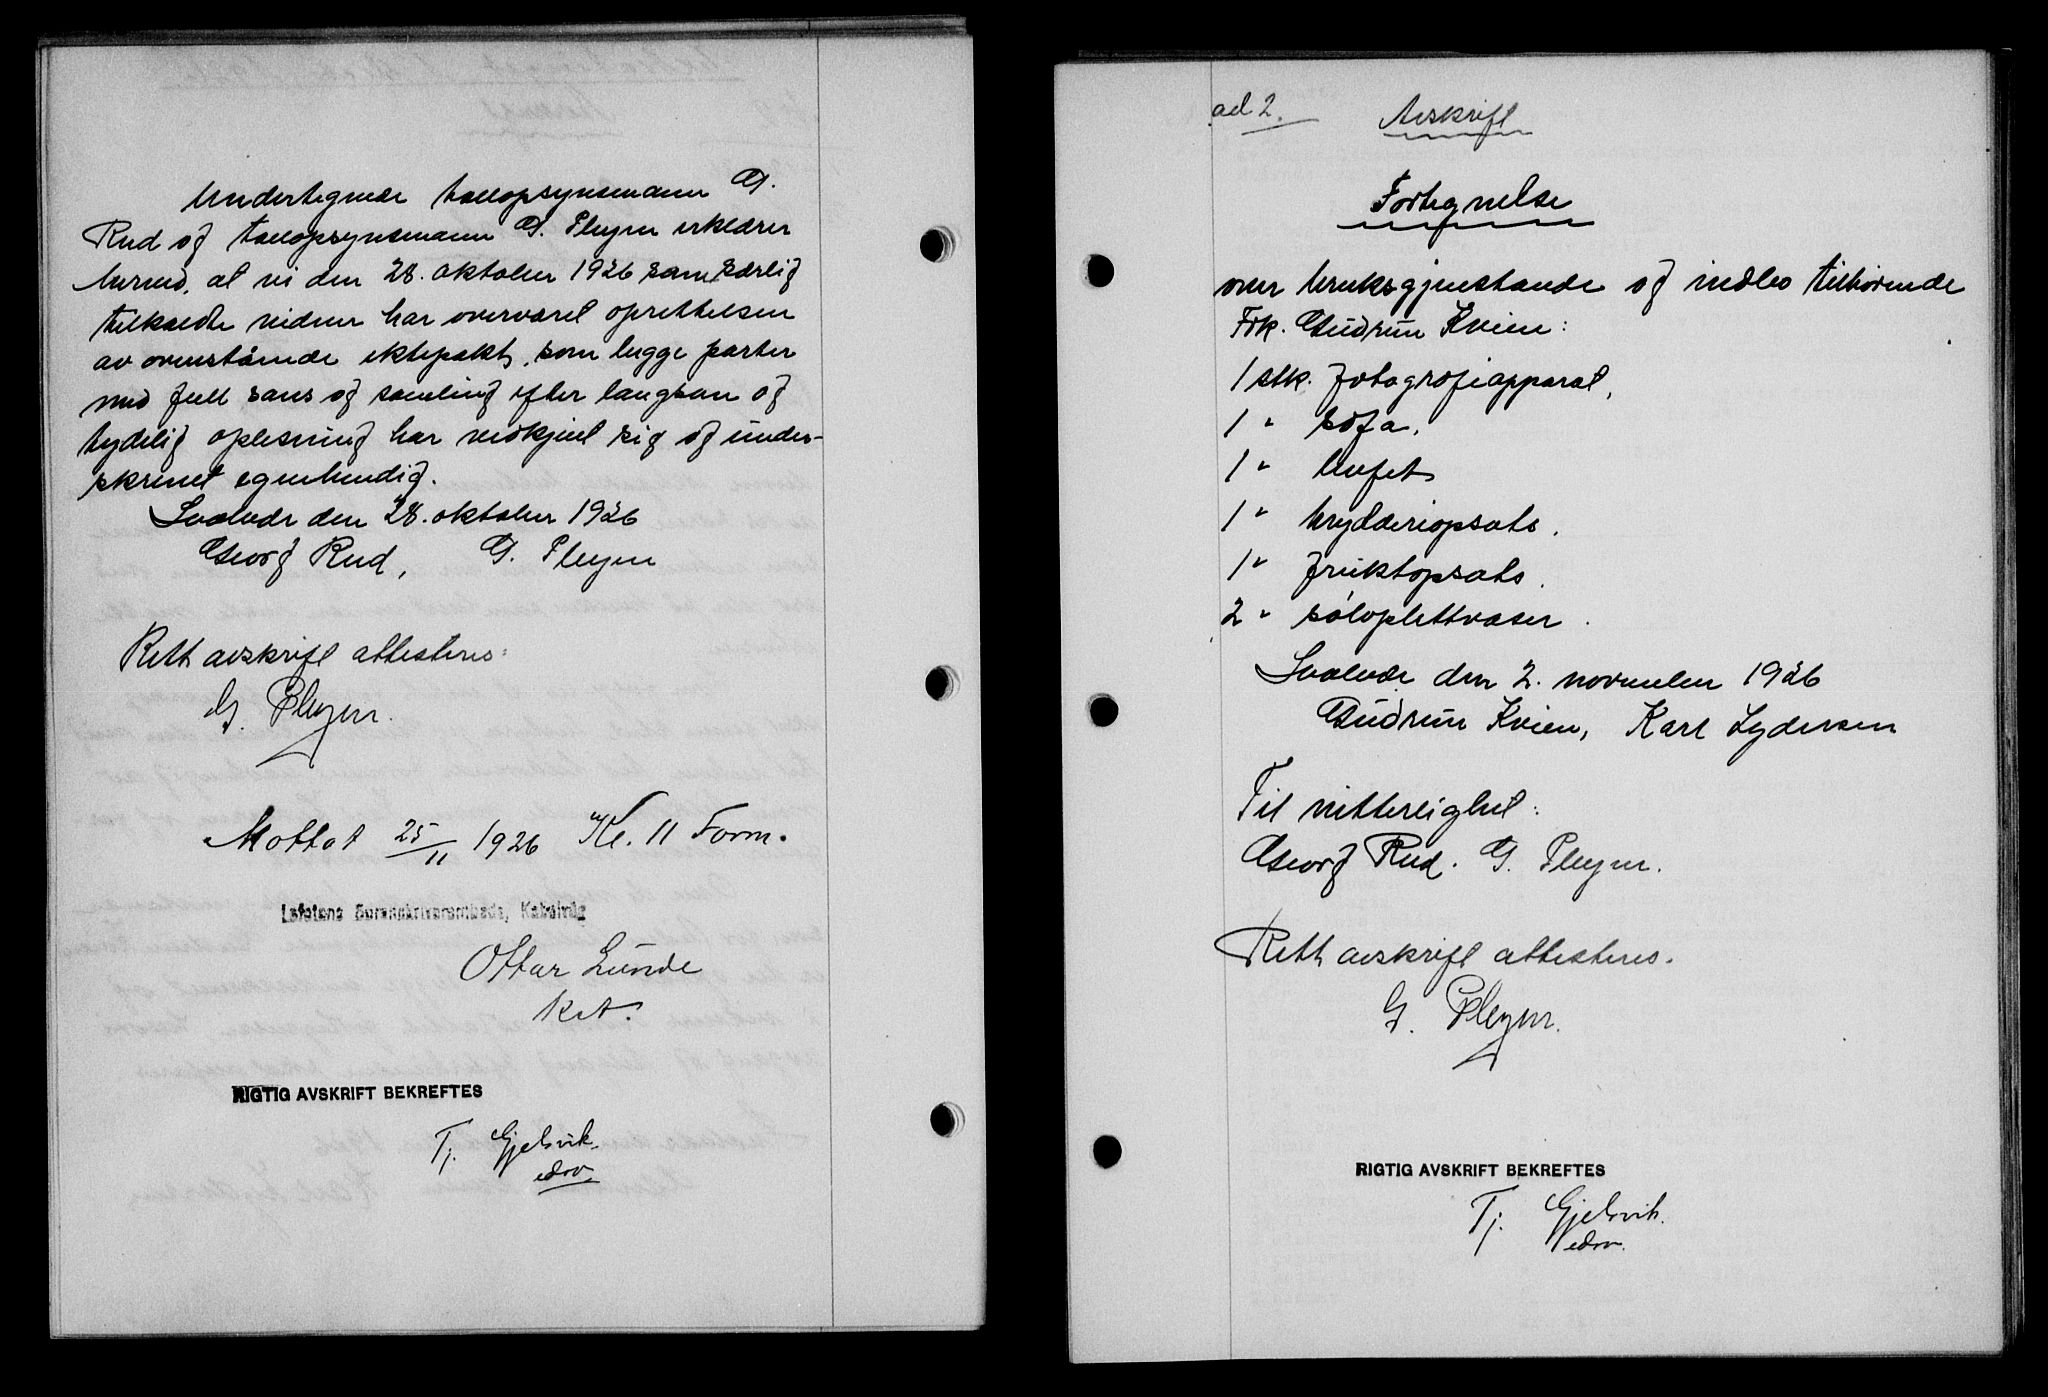 Undertegnede tollopsynsmann G.
Rud og tollopsynsmann G. Pleym erklærer
herved, at vi den 28. oktober 1926 som særlig
tilkaldte vidner har overværet oprettelsen
av ovenstående ektepakt, som begge parter
med full sans og samling efter langsom og
tydelig oplesning har vedkjent sig og under-
skrevet egenhendig.
Svolvær den 28. oktober 1926
Georg Rud, G. Pleym
Rett avskrift attesteres:
G. Pleym.
Mottat 25/11 1926 Kl. 11 Form.
Lofotens Sorenskriverembede, Kabelvåg
Ottar Lunde
Kst.
RIGTIG AVSKRIFT BEKREFTES
Tj. Gjelsvik.
edsv.
ad 2. Avskrift
Fortegnelse
over bruksgjenstande og indbo tilhørende
Frk. Gudrun Kvien:
1 stk. fotografiapparat,
1 " sofa.
1 " bufet
1 " krydderiopsats.
1 " fruktopsats.
2 " sølvplettvaser.
Svolvær den 2. november 1926
Gudrun Kvien, Karl Lydersen
Til vitterlighet:
Georg Rud. G. Pleym.
Rett avskrift attesteres.
G. Pleym.
RIGTIG AVSKRIFT BEKREFTES
Tj. Gjelsvik.
edsv.